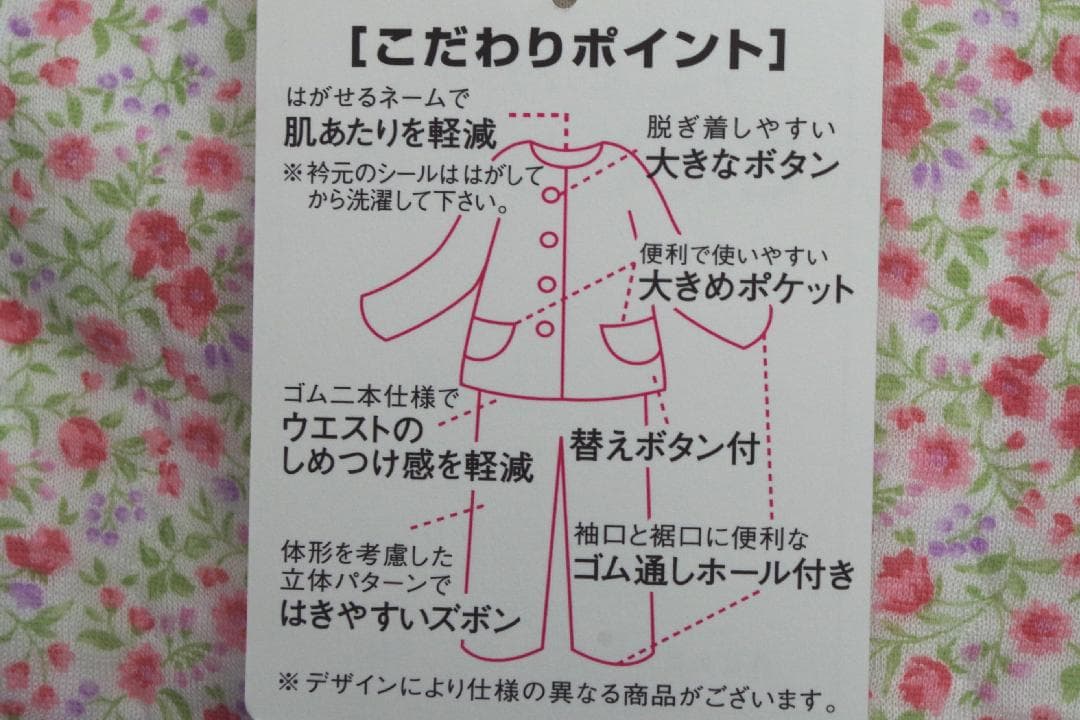 [こだわりポイント]
はがせるネームで
肌あたりを軽減
※衿元のシールははがして
から洗濯して下さい。
脱ぎ着しやすい
大きなボタン
便利で使いやすい
大きめポケット
ゴム二本仕様で
ウエストの
しめつけ感を軽減
替えボタン付
体形を考慮した
立体パターンで
はきやすいズボン
袖口と裾口に便利な
ゴム通しホール付き
※デザインにより仕様の異なる商品がございます。